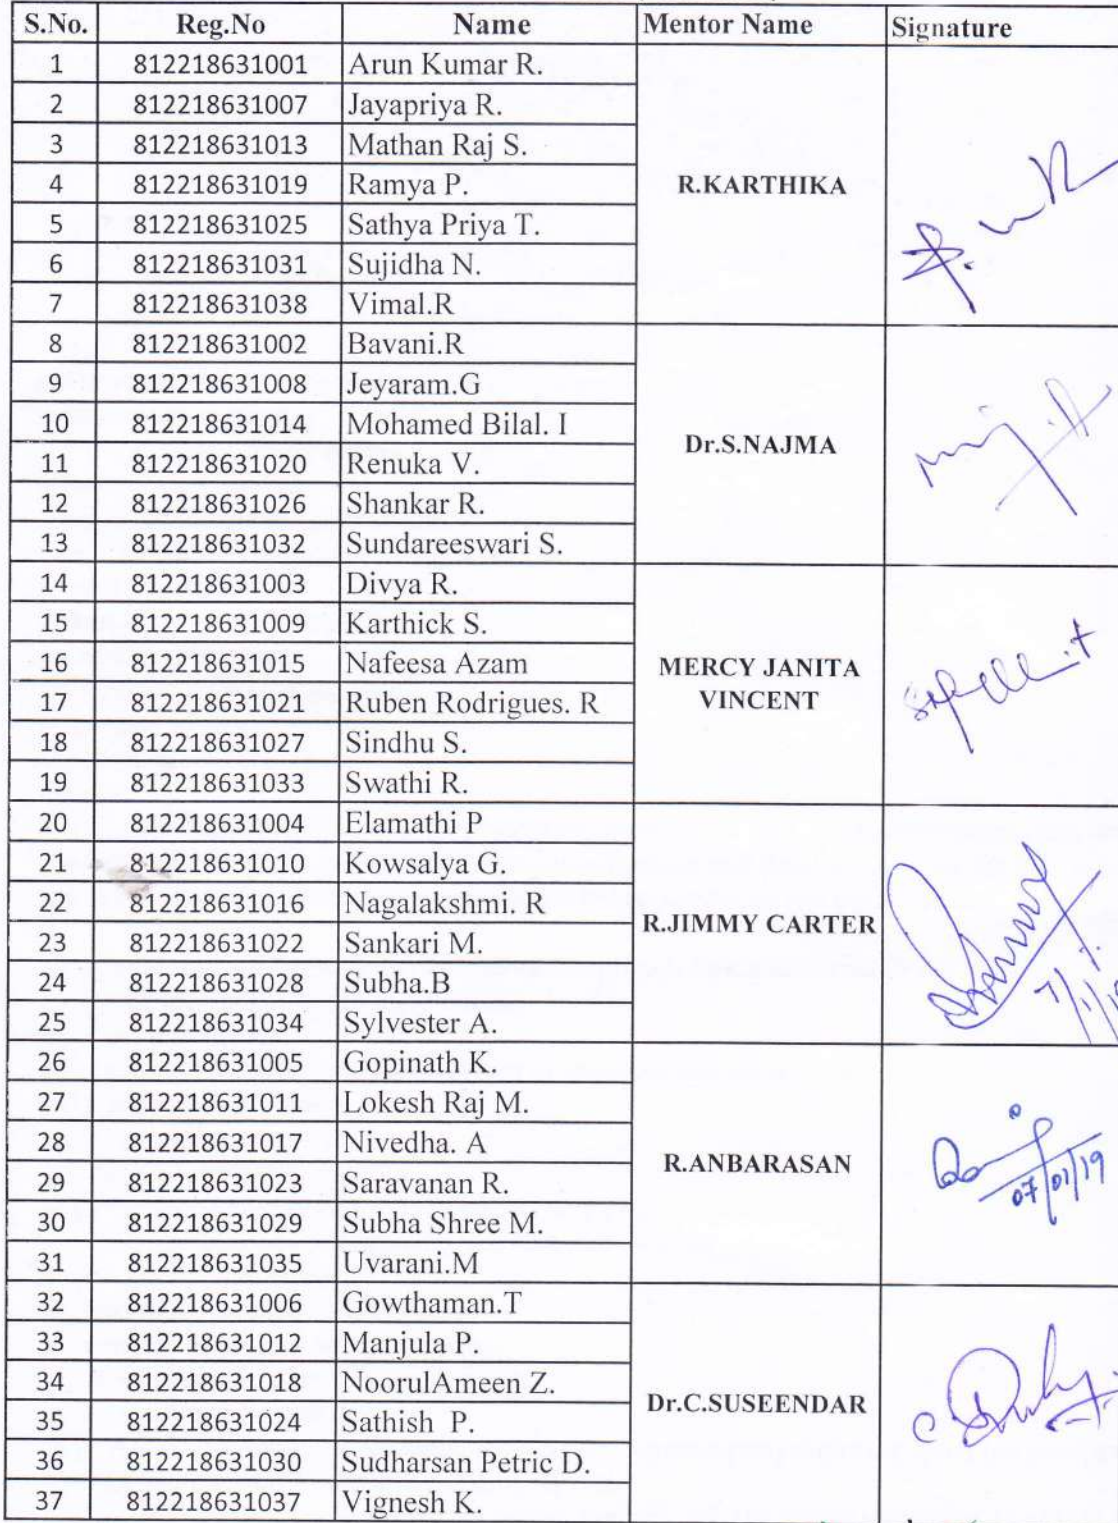 S.No. Reg.No Name Mentor Name Signature
1 812218631001 Arun Kumar R.
2 812218631007 Jayapriya R.
3 812218631013 Mathan Raj S.
4 812218631019 Ramya P. R.KARTHIKA
5 812218631025 Sathya Priya T.
6 812218631031 Sujidha N.
7 812218631038 Vimal.R
8 812218631002 Bavani.R
9 812218631008 Jeyaram.G
10 812218631014 Mohamed Bilal. I
Dr.S.NAJMA
11 812218631020 Renuka V.
12 812218631026 Shankar R.
13 812218631032 Sundareeswari S.
14 812218631003 Divya R.
15 812218631009 Karthick S.
16 812218631015 Nafeesa Azam MERCY JANITA
17 812218631021 Ruben Rodrigues. R VINCENT
18 812218631027 Sindhu S.
19 812218631033 Swathi R.
20 812218631004 Elamathi P
21 812218631010 Kowsalya G.
22 812218631016 Nagalakshmi. R
R.JIMMY CARTER
23 812218631022 Sankari M.
24 812218631028 Subha.B
25 812218631034 Sylvester A.
26 812218631005 Gopinath K.
27 812218631011 Lokesh Raj M.
28 812218631017 Nivedha. A
R.ANBARASAN
29 812218631023 Saravanan R. 07/01/19
30 812218631029 Subha Shree M.
31 812218631035 Uvarani.M
32 812218631006 Gowthaman.T
33 812218631012 Manjula P.
34 812218631018 NoorulAmeen Z.
Dr.C.SUSEENDAR
35 812218631024 Sathish P.
36 812218631030 Sudharsan Petric D.
37 812218631037 Vignesh K.